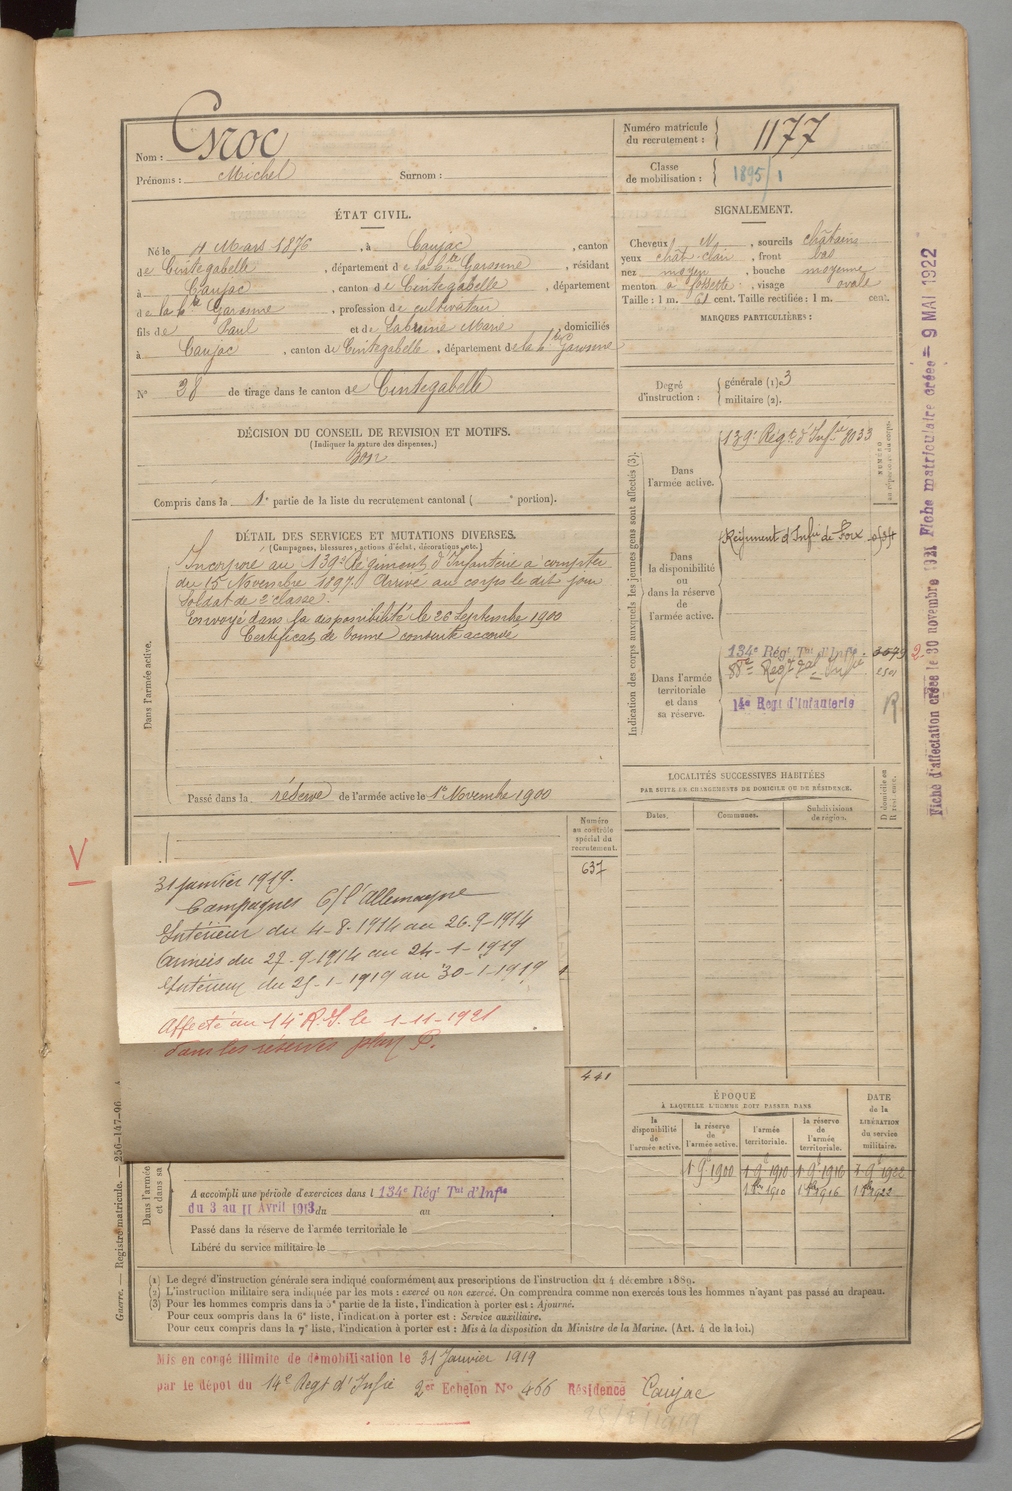 Nom : Croc
Prénoms : Michel Surnom :
Numéro matricule du recrutement : 1177
Classe de mobilisation : 1895/1
ÉTAT CIVIL.
Né le 4 Mars 1876, à Caujac, canton
de Cintegabelle, département de la Hte Garonne, résidant
à Caujac, canton de Cintegabelle, département
de la Hte Garonne, profession de cultivateur
fils de Paul et de Labrune Marie, domiciliés
à Caujac, canton de Cintegabelle, département de la Hte Garonne
N° 38 de tirage dans le canton de Cintegabelle
SIGNALEMENT.
Cheveux N, sourcils châtains
yeux chât-clair, front bas
nez moyen, bouche moyenne
menton à fossette, visage ovale
Taille : 1 m. 61 cent. Taille rectifiée : 1 m. cent.
MARQUES PARTICULIÈRES :
Degré d'instruction : générale (1) 3
militaire (2).
DÉCISION DU CONSEIL DE REVISION ET MOTIFS.
(Indiquer la nature des dispenses.)
Bon
Compris dans la 1e partie de la liste du recrutement cantonal ( e portion).
DÉTAIL DES SERVICES ET MUTATIONS DIVERSES.
(Campagnes, blessures, actions d'éclat, décorations, etc.)
Dans l'armée active.
Incorporé au 139e Régiment d'Infanterie à compter
du 15 Novembre 1897. Arrivé au corps le dit jour
Soldat de 2e classe.
Envoyé dans la disponibilité le 26 Septembre 1900
Certificat de bonne conduite accordé
Passé dans la réserve de l'armée active le 1er Novembre 1900
Indication des corps auxquels les jeunes gens sont affectés (3).
NUMÉRO au répertoire du corps.
Dans l'armée active.
139e Régt d'Infie 8033
Dans la disponibilité ou dans la réserve de l'armée active.
Régiment d'Infie de Foix
Dans l'armée territoriale et dans sa réserve.
134e Régt Tal d'Infie
14e Regt d'Infanterie
R
LOCALITÉS SUCCESSIVES HABITÉES
PAR SUITE DE CHANGEMENTS DE DOMICILE OU DE RÉSIDENCE.
Dates. Communes. Subdivisions de région. D domicile ou R résidence.
Numéro au contrôle spécial du recrutement.
637
441
V
31 janvier 1919.
Campagnes C/ l'Allemagne
Intérieur du 4-8-1914 au 26-9-1914
Armées du 27-9-1914 au 24-1-1919
Intérieur du 25-1-1919 au 30-1-1919
Affecté au 14e R.I. le 1-11-1921
dans les réserves plan P.
ÉPOQUE
À LAQUELLE L'HOMME DOIT PASSER DANS
la disponibilité de l'armée active. la réserve de l'armée active. l'armée territoriale. la réserve de l'armée territoriale.
DATE de la LIBÉRATION du service militaire.
1 9bre 1900 1 9bre 1910 1 9bre 1916 1 9bre 1922
1 8bre 1910 1 8bre 1916 1 8bre 1922
Dans l'armée et dans sa
A accompli une période d'exercices dans l 134e Régt Tal d'Infie
du 3 au 11 Avril 1913 du au
Passé dans la réserve de l'armée territoriale le
Libéré du service militaire le
(1) Le degré d'instruction générale sera indiqué conformément aux prescriptions de l'instruction du 4 décembre 1889.
(2) L'instruction militaire sera indiquée par les mots : exercé ou non exercé. On comprendra comme non exercés tous les hommes n'ayant pas passé au drapeau.
(3) Pour les hommes compris dans la 5e partie de la liste, l'indication à porter est : Ajourné.
Pour ceux compris dans la 6e liste, l'indication à porter est : Service auxiliaire.
Pour ceux compris dans la 7e liste, l'indication à porter est : Mis à la disposition du Ministre de la Marine. (Art. 4 de la loi.)
Guerre. — Registre matricule. — 256-147-96
Mis en congé illimité de démobilisation le 31 Janvier 1919
par le dépôt du 14e Regt d'Infie 2er Echelon N° 466 Résidence Caujac
Fiche d'affectation créée le 30 novembre 1921 Fiche matriculaire créée = 9 MAI 1922